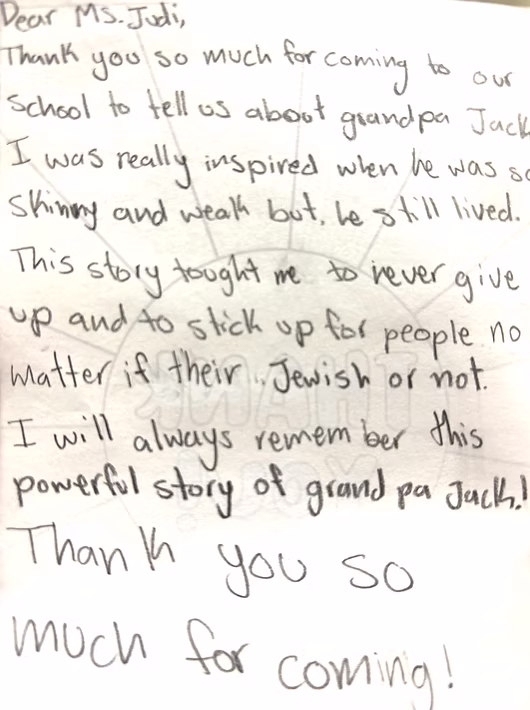 Dear Ms. Judi,
Thank you so much for coming to our
school to tell us about grandpa Jack
I was really inspired when he was so
skinny and weak but, he still lived.
This story tought me to never give
up and to stick up for people no
matter if their Jewish or not.
I will always remember this
powerful story of grandpa Jack!
Thank you so
much for coming!
THANK
YOU!